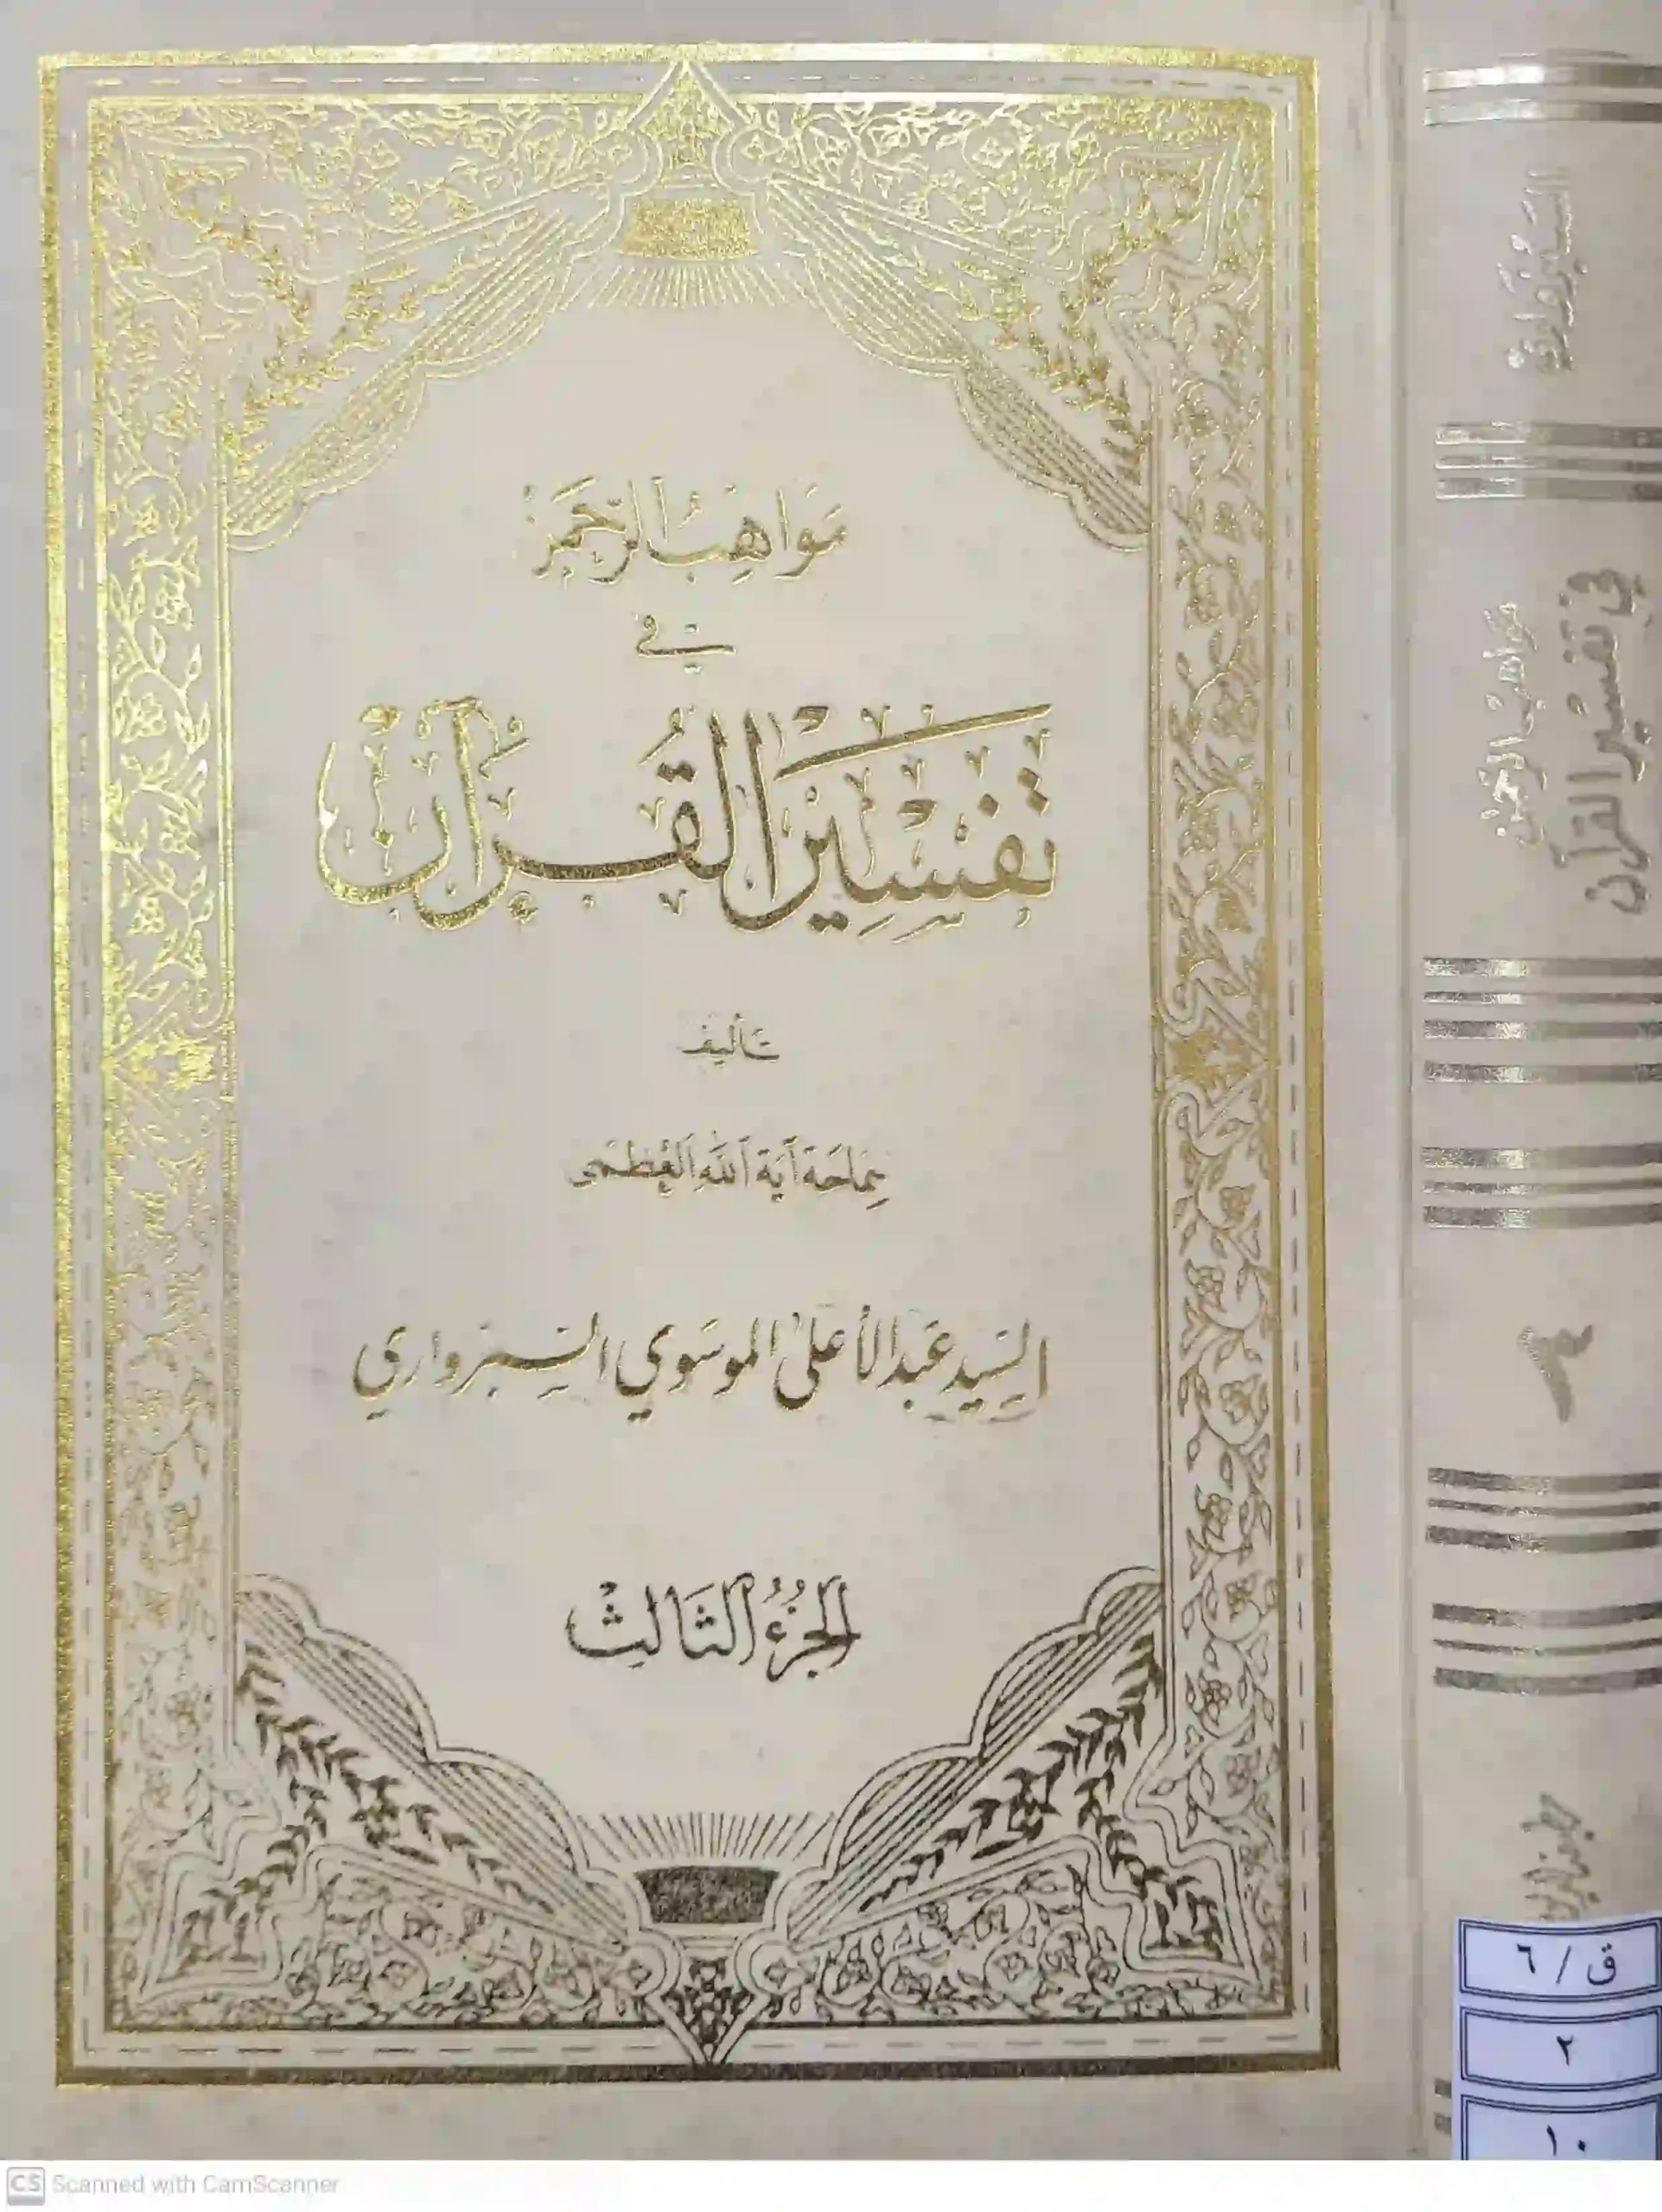 مَوَاهِبُ الرَّحْمَنْ
في
تَفْسِيْرِ الْقُرْآنِ
تَأليف
سَمَاحَة آيَة اللهِ العُظمى
السَيّد عَبد الأعلىٰ الموسَوي السَبزواري
الجُزءُ الثَالِثْ
السَبزَواري
مَوَاهِبُ الرَّحْمَن
في تَفسِير القرآن
٣
ق / ٦
٢
١٠
CS Scanned with CamScanner